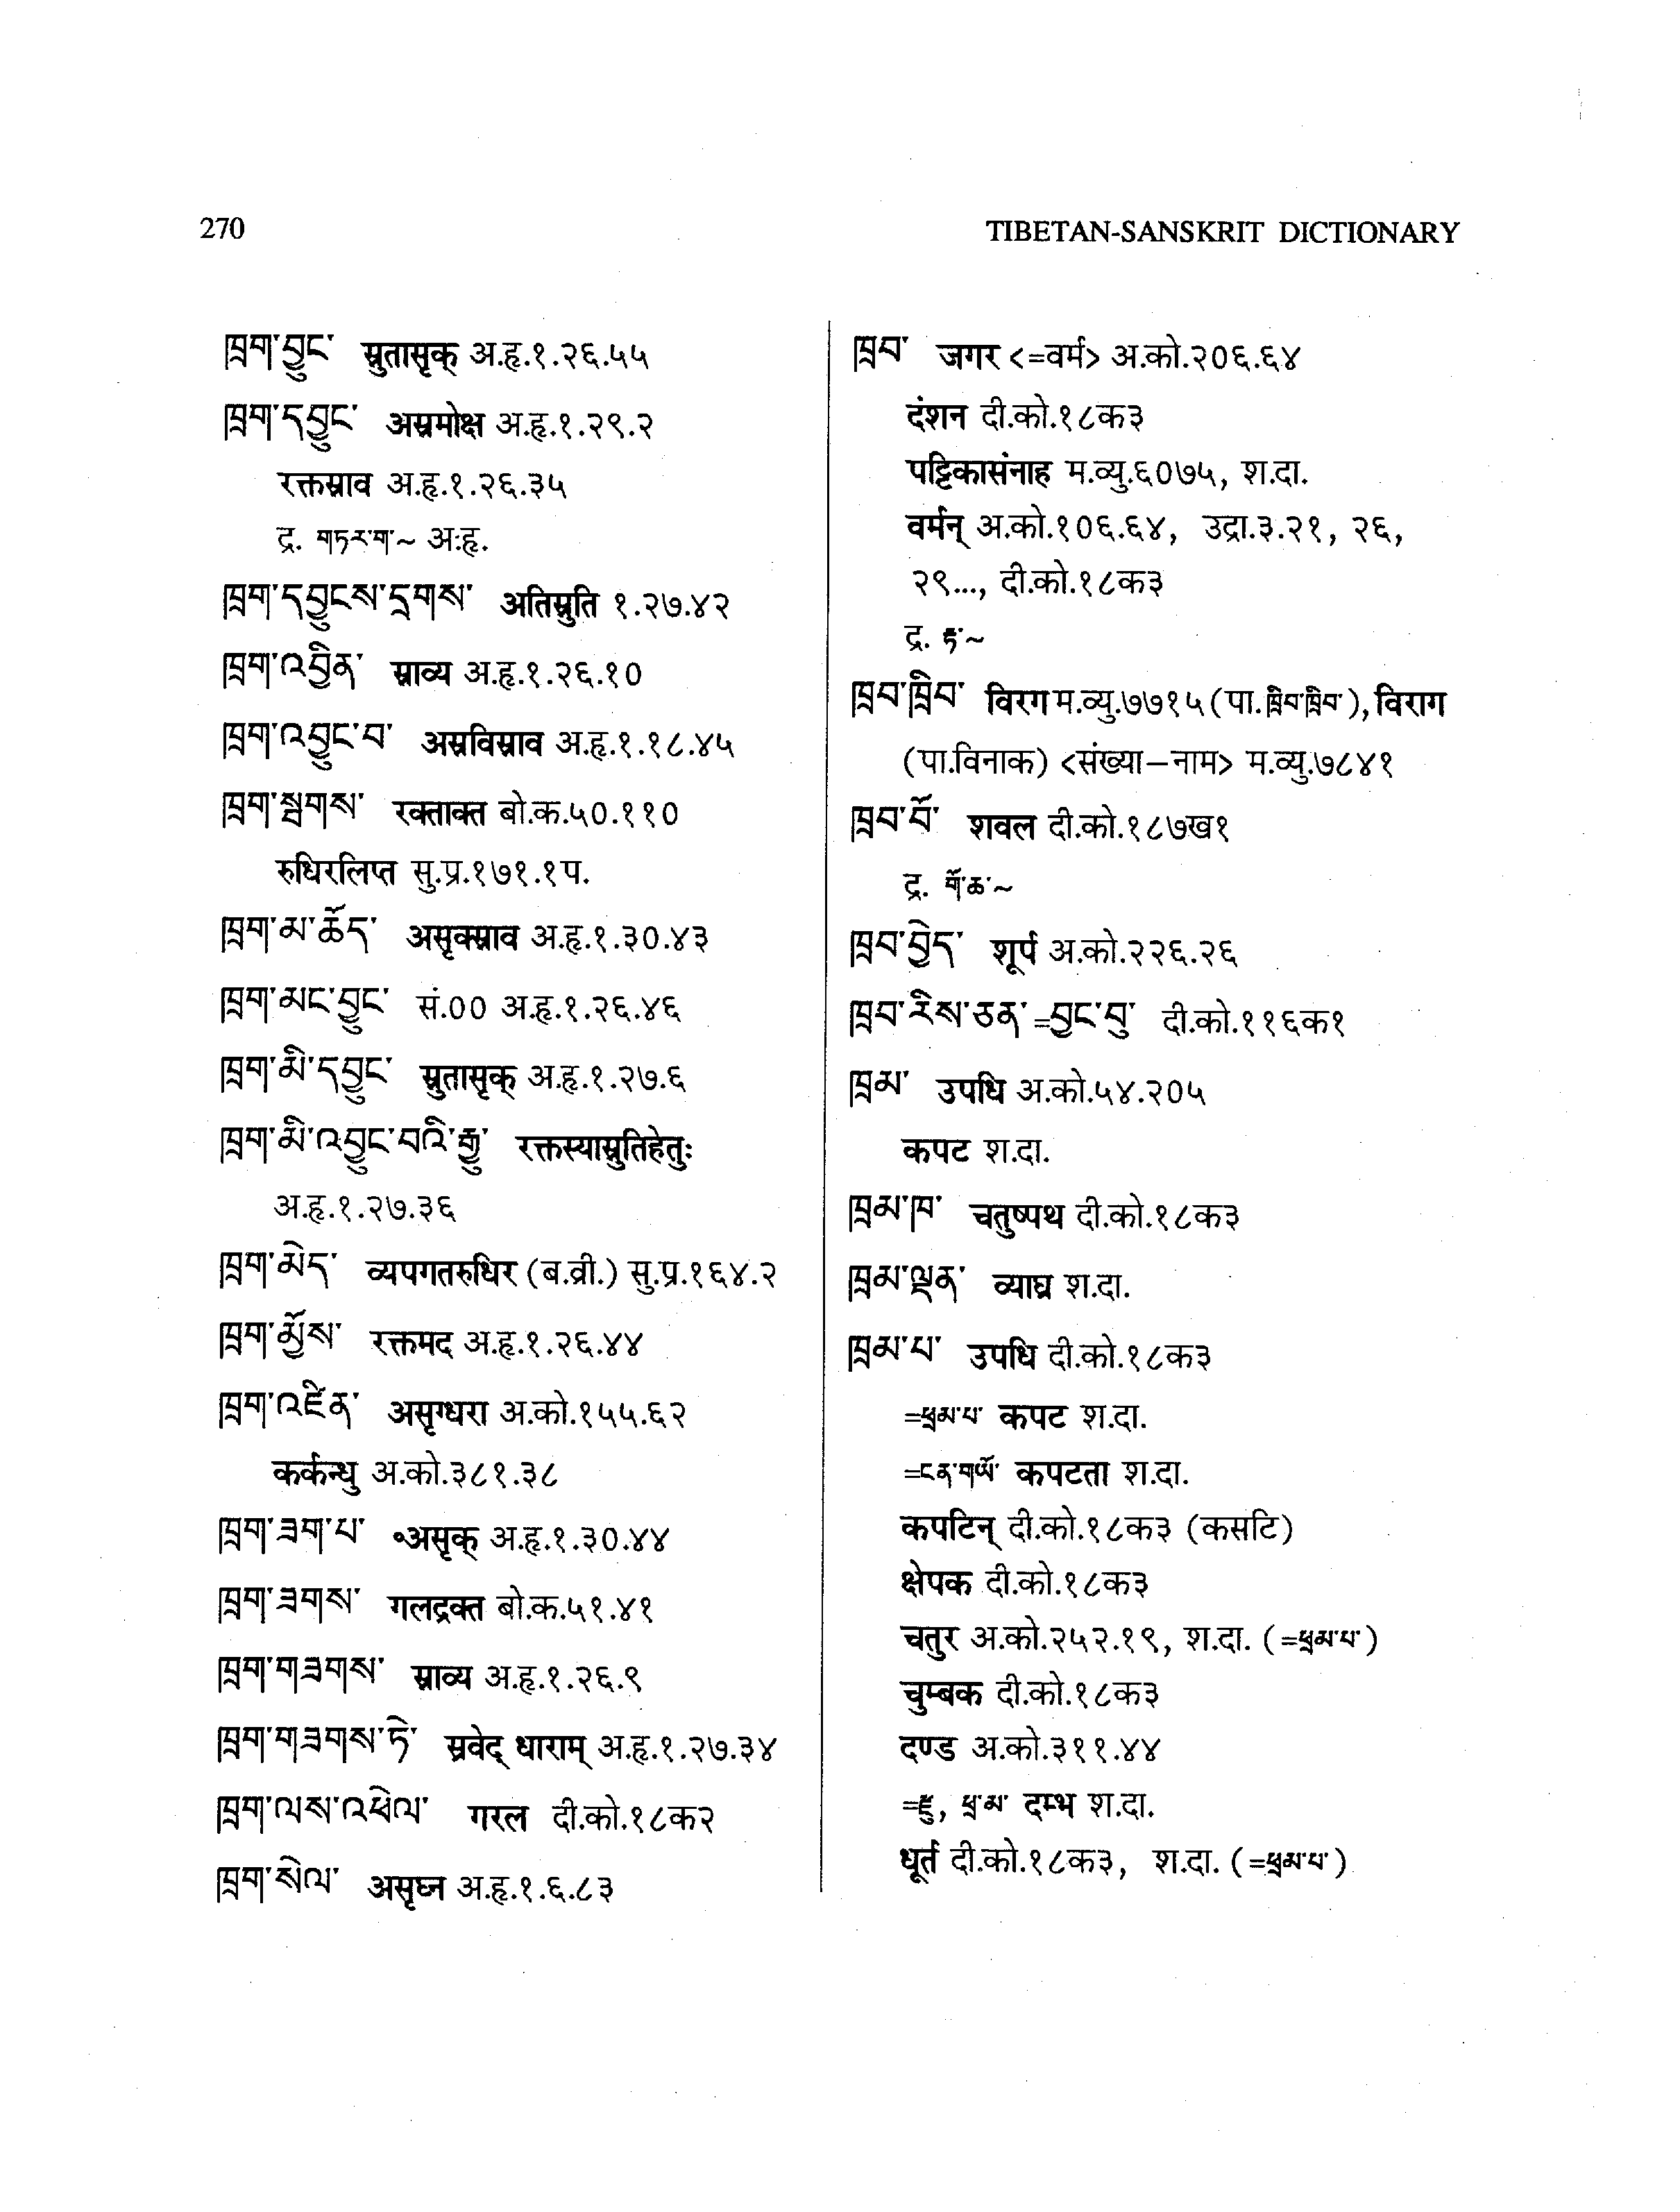 270
TIBETAN-SANSKRIT DICTIONARY
ཁྲག་བྱུང་ स्रुतासृक् अ.हृ.१.२६.५५
ཁྲག་དབྱུང་ अस्रमोक्ष अ.हृ.१.२९.२
रक्तस्राव अ.हृ.१.२६.३५
द्र. གཏར་ག་~ अ.हृ.
ཁྲག་དབྱུངས་དྲགས་ अतिस्रुति १.२७.४२
ཁྲག་འབྱིན་ स्राव्य अ.हृ.१.२६.१०
ཁྲག་འབྱུང་བ་ अस्रविस्राव अ.हृ.१.१८.४५
ཁྲག་སྦགས་ रक्ताक्त बो.क.५०.११०
रुधिरलिप्त सु.प्र.१७१.१प.
ཁྲག་མ་ཆོད་ असृक्स्राव अ.हृ.१.३०.४३
ཁྲག་མང་བྱུང་ सं.०० अ.हृ.१.२६.४६
ཁྲག་མི་དབྱུང་ स्रुतासृक् अ.हृ.१.२७.६
ཁྲག་མི་འབྱུང་བའི་རྒྱུ་ रक्तस्यास्रुतिहेतुः
अ.हृ.१.२७.३६
ཁྲག་མེད་ व्यपगतरुधिर (ब.व्री.) सु.प्र.१६४.२
ཁྲག་མྱོས་ रक्तमद अ.हृ.१.२६.४४
ཁྲག་འཛིན་ असृग्धरा अ.को.१५५.६२
कर्कन्धु अ.को.३८१.३८
ཁྲག་ཟག་པ་ ॰असृक् अ.हृ.१.३०.४४
ཁྲག་ཟགས་ गलद्रक्त बो.क.५१.४१
ཁྲག་གཟགས་ स्राव्य अ.हृ.१.२६.९
ཁྲག་གཟགས་ཏེ་ स्रवेद् धाराम् अ.हृ.१.२७.३४
ཁྲག་ལས་འཕེལ་ गरल दी.को.१८क२
ཁྲག་སེལ་ असृघ्न अ.हृ.१.६.८३
ཁྲབ་ जगर <=वर्म> अ.को.२०६.६४
दंशन दी.को.१८क३
पट्टिकासंनाह म.व्यु.६०७५, श.दा.
वर्मन् अ.को.१०६.६४, उद्रा.३.२१, २६,
२९..., दी.को.१८क३
द्र. ~
ཁྲབ་ཁྲིབ་ विरग म.व्यु.७७१५ (पा.ཁྲིབ་ཁྲིབ་), विराग
(पा.विनाक) <संख्या–नाम> म.व्यु.७८४१
ཁྲབ་བོ་ शवल दी.को.१८७ख१
द्र. གོ་ཆ་~
ཁྲབ་བྱེད་ शूर्प अ.को.२२६.२६
ཁྲབ་རིས་ཅན་=བྱང་བུ་ दी.को.११६क१
ཁྲམ་ उपधि अ.को.५४.२०५
कपट श.दा.
ཁྲམ་ཁ་ चतुष्पथ दी.को.१८क३
ཁྲམ་ལྡན་ व्याघ्र श.दा.
ཁྲམ་པ་ उपधि दी.को.१८क३
=ཕྲམ་པ་ कपट श.दा.
=ངན་གཡོ་ कपटता श.दा.
कपटिन् दी.को.१८क३ (कसटि)
क्षेपक दी.को.१८क३
चतुर अ.को.२५२.१९, श.दा. (=ཕྲམ་པ་)
चुम्बक दी.को.१८क३
दण्ड अ.को.३११.४४
=རྫུ, ཕྲ་མ་ दम्भ श.दा.
धूर्त दी.को.१८क३, श.दा. (=ཕྲམ་པ་)